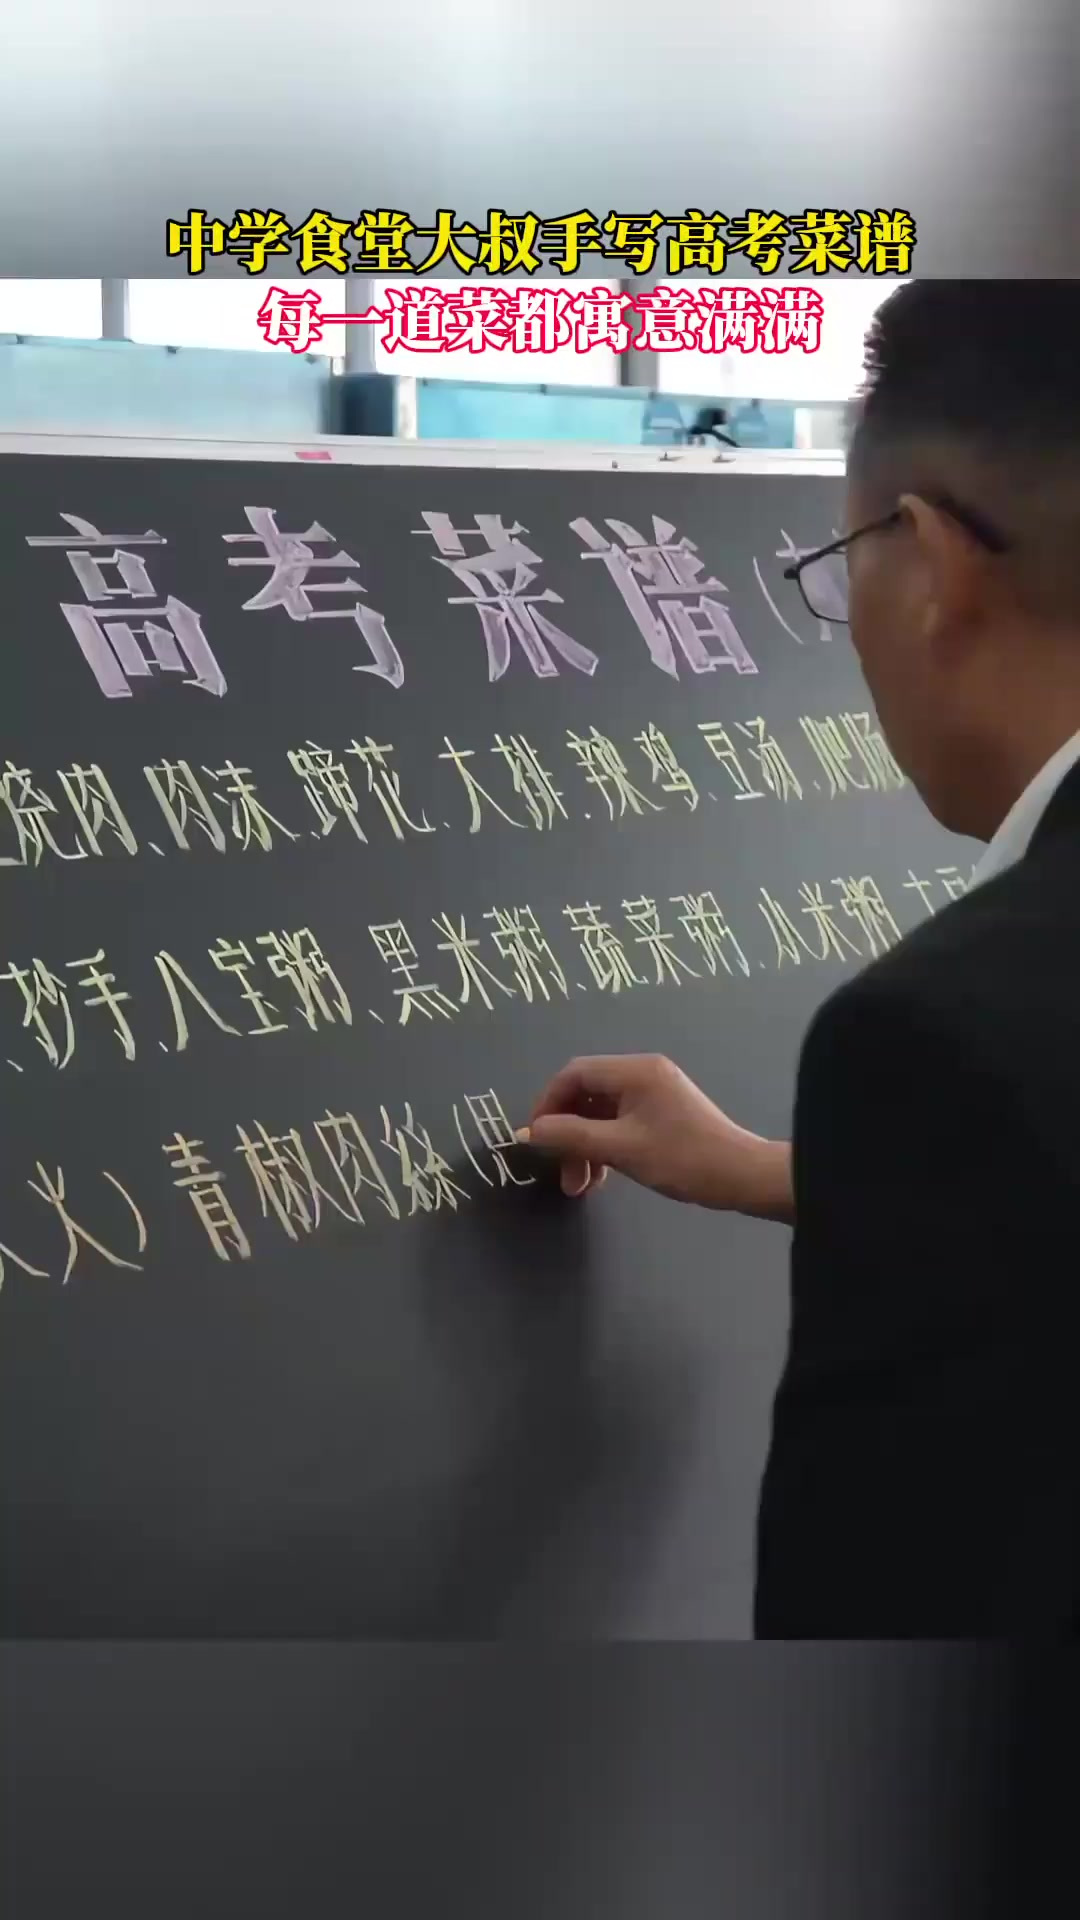 中学食堂大叔手写高考菜谱
每一道菜都寓意满满
高考菜谱(
烧肉、肉沫、蹄花、大排、辣鸡、豆汤、肥肠
、抄手、八宝粥、黑米粥、蔬菜粥、小米粥、土豆
火)青椒肉絲(思